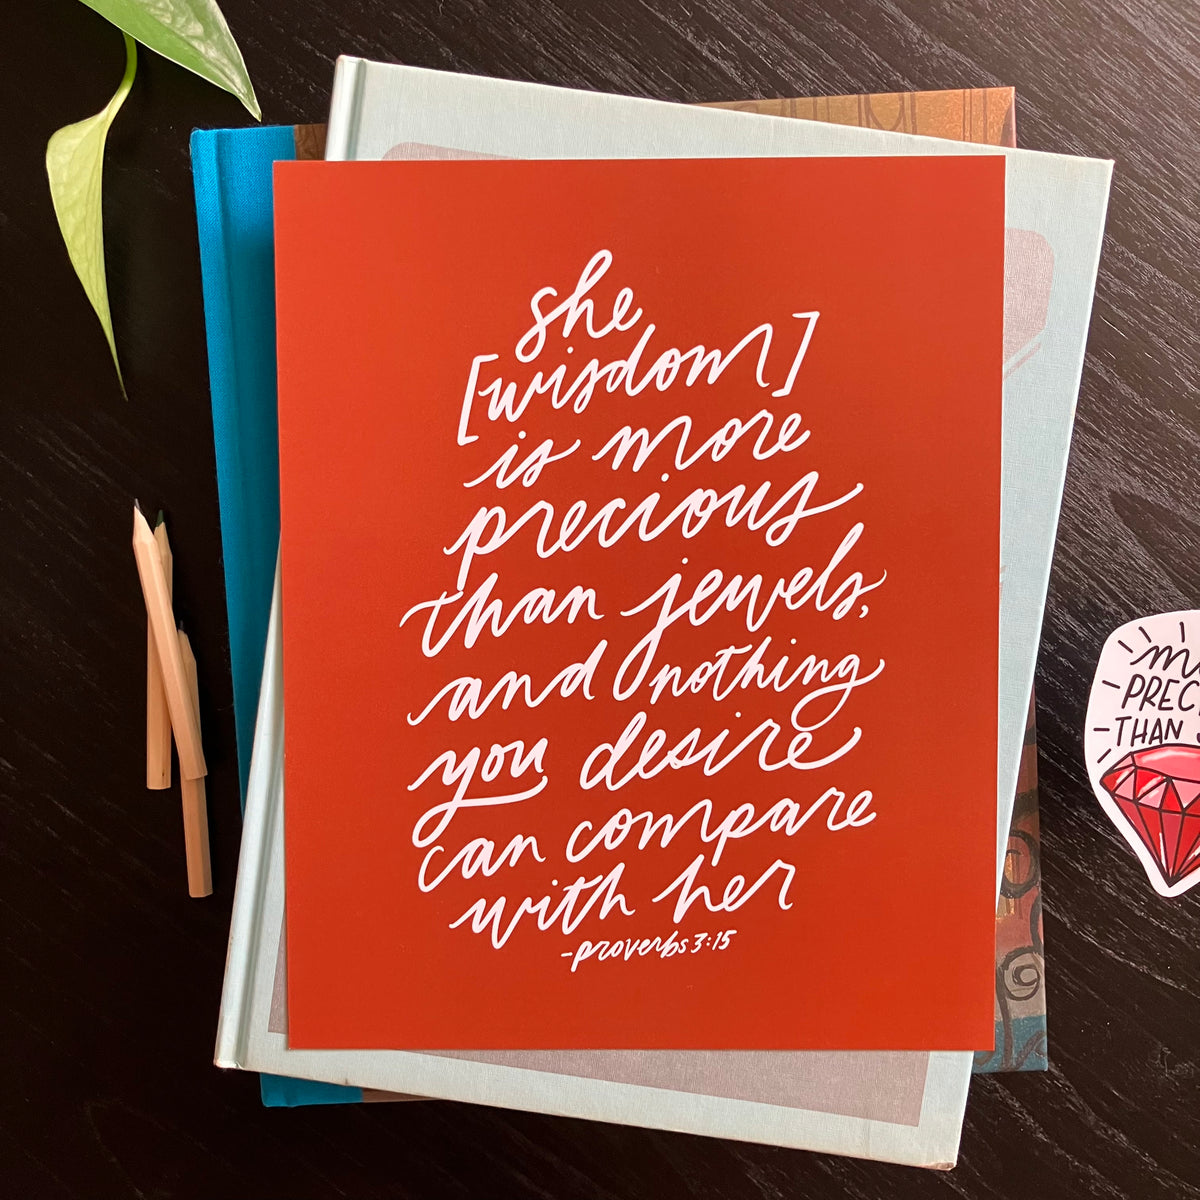 she
[wisdom]
is more
precious
than jewels,
and nothing
you desire
can compare
with her
-proverbs 3:15
THAN